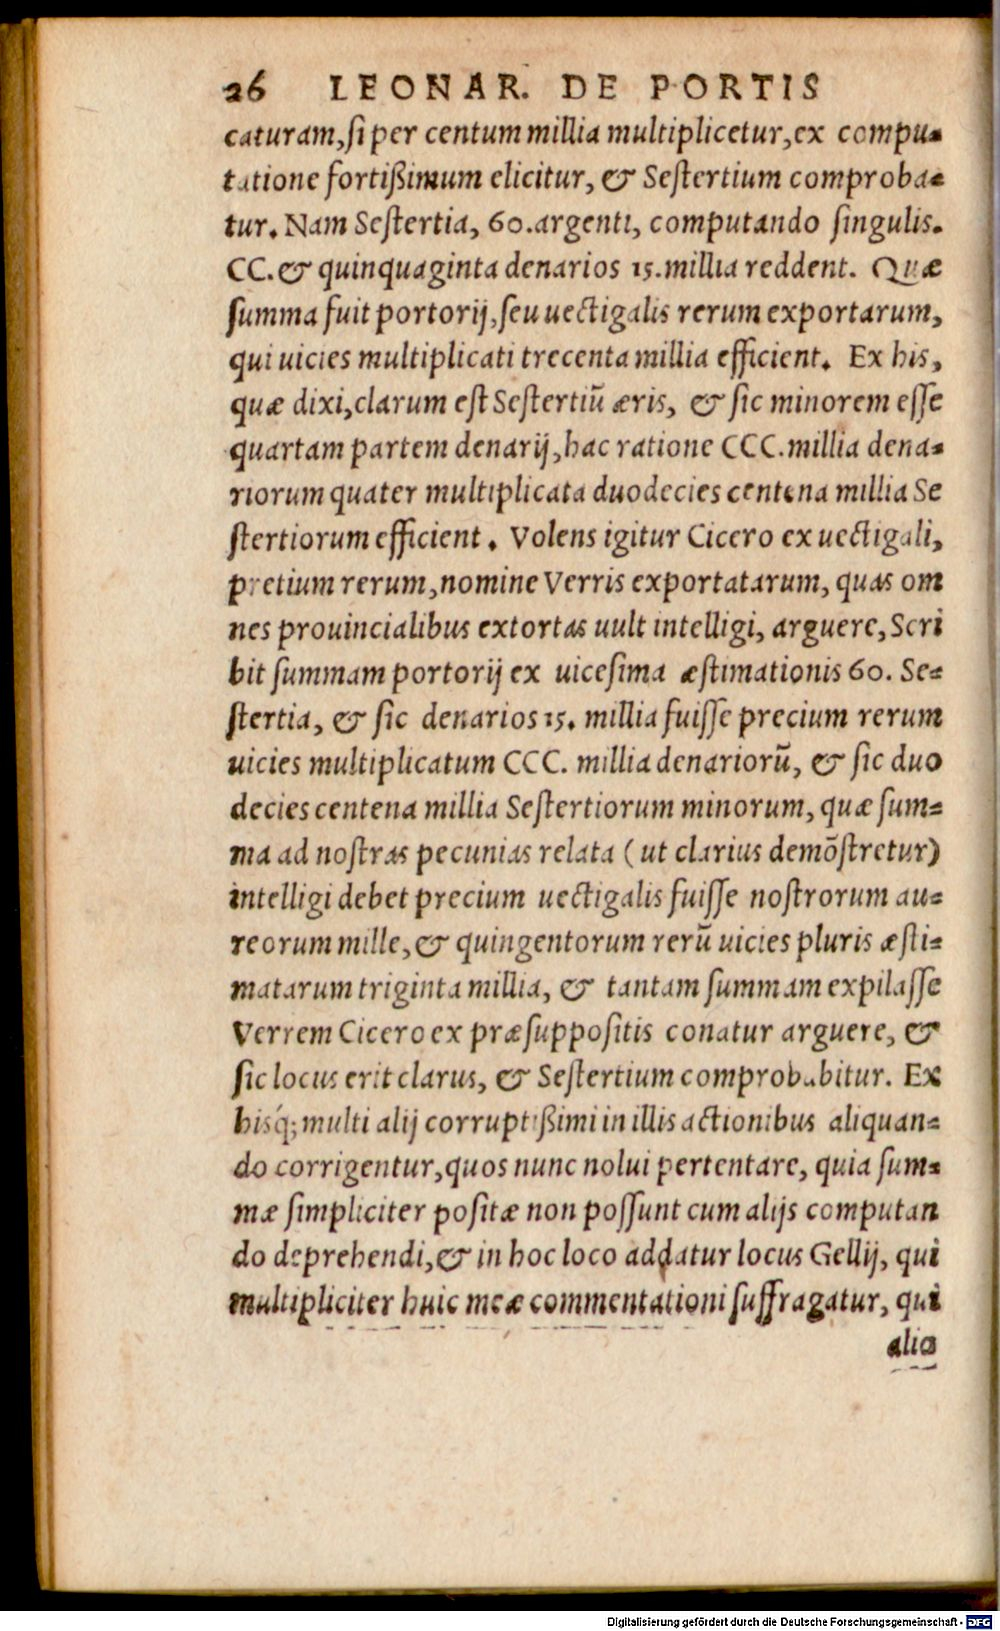 26 LEONAR. DE PORTIS
caturam, si per centum millia multiplicetur, ex compu-
tatione fortißimum elicitur, & Sestertium comproba-
tur. Nam Sestertia, 60. argenti, computando singulis.
CC. & quinquaginta denarios 15. millia reddent. Quæ
summa fuit portorij, seu uectigalis rerum exportarum,
qui uicies multiplicati trecenta millia efficient. Ex his,
quæ dixi, clarum est Sestertiũ æris, & sic minorem esse
quartam partem denarij, hac ratione CCC. millia dena-
riorum quater multiplicata duodecies centena millia Se
stertiorum efficient. Volens igitur Cicero ex uectigali,
pretium rerum, nomine Verris exportatarum, quas om
nes prouincialibus extortas uult intelligi, arguere, Scri
bit summam portorij ex uicesima æstimationis 60. Se-
stertia, & sic denarios 15. millia fuisse precium rerum
uicies multiplicatum CCC. millia denariorũ, & sic duo
decies centena millia Sestertiorum minorum, quæ sum-
ma ad nostras pecunias relata (ut clarius demõstretur)
intelligi debet precium uectigalis fuisse nostrorum au-
reorum mille, & quingentorum rerũ uicies pluris æsti-
matarum triginta millia, & tantam summam expilasse
Verrem Cicero ex præsuppositis conatur arguere, &
sic locus erit clarus, & Sestertium comprobabitur. Ex
hisq́; multi alij corruptißimi in illis actionibus aliquan-
do corrigentur, quos nunc nolui pertentare, quia sum-
mæ simpliciter positæ non possunt cum alijs computan
do deprehendi, & in hoc loco addatur locus Gellij, qui
multipliciter huic meæ commentationi suffragatur, qui
alio
Digitalisierung gefördert durch die Deutsche Forschungsgemeinschaft - DFG